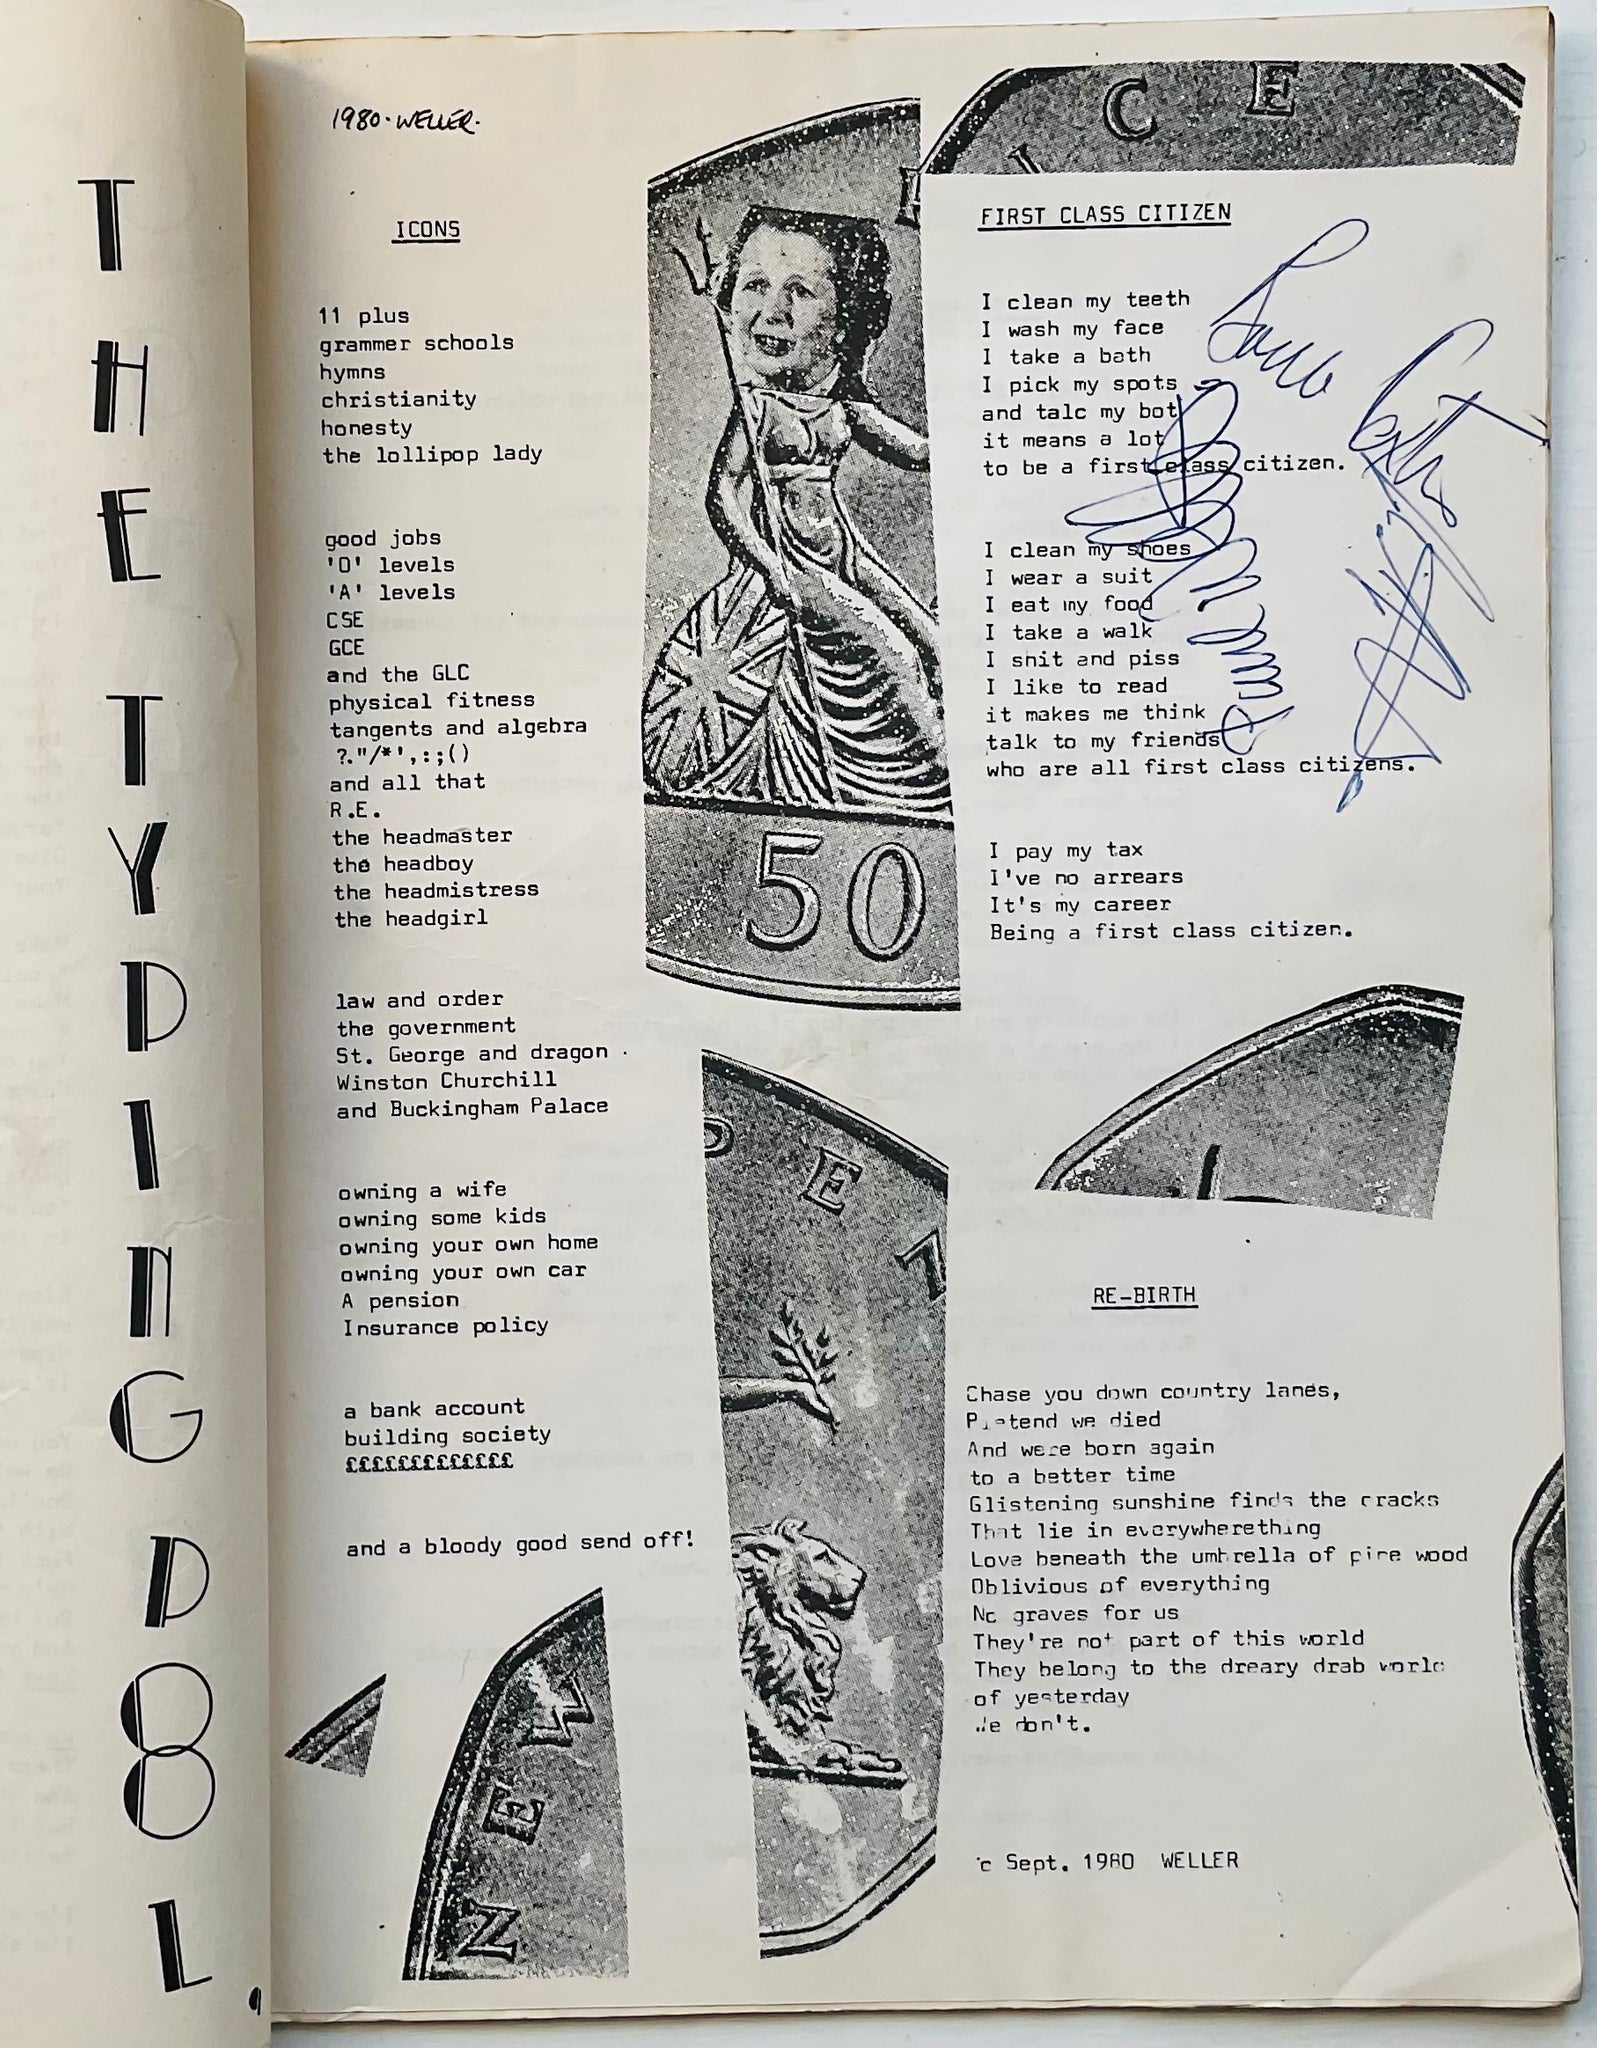 THE TYPING POOL
1980·WELLER·
ICONS
11 plus
grammer schools
hymns
christianity
honesty
the lollipop lady
good jobs
'O' levels
'A' levels
CSE
GCE
and the GLC
physical fitness
tangents and algebra
?."/*',:;()
and all that
R.E.
the headmaster
the headboy
the headmistress
the headgirl
law and order
the government
St. George and dragon
Winston Churchill
and Buckingham Palace
owning a wife
owning some kids
owning your own home
owning your own car
A pension
Insurance policy
a bank account
building society
£££££££££££££
and a bloody good send off!
50
PE
NEW
ICE
FIRST CLASS CITIZEN
I clean my teeth
I wash my face
I take a bath
I pick my spots
and talc my bot
it means a lot
to be a first class citizen.
I clean my shoes
I wear a suit
I eat my food
I take a walk
I shit and piss
I like to read
it makes me think
talk to my friends
who are all first class citizens.
I pay my tax
I've no arrears
It's my career
Being a first class citizen.
RE-BIRTH
Chase you down country lanes,
Pretend we died
And were born again
to a better time
Glistening sunshine finds the cracks
That lie in everywherething
Love beneath the umbrella of pine wood
Oblivious of everything
No graves for us
They're not part of this world
They belong to the dreary drab world
of yesterday
We don't.
c Sept. 1980 WELLER